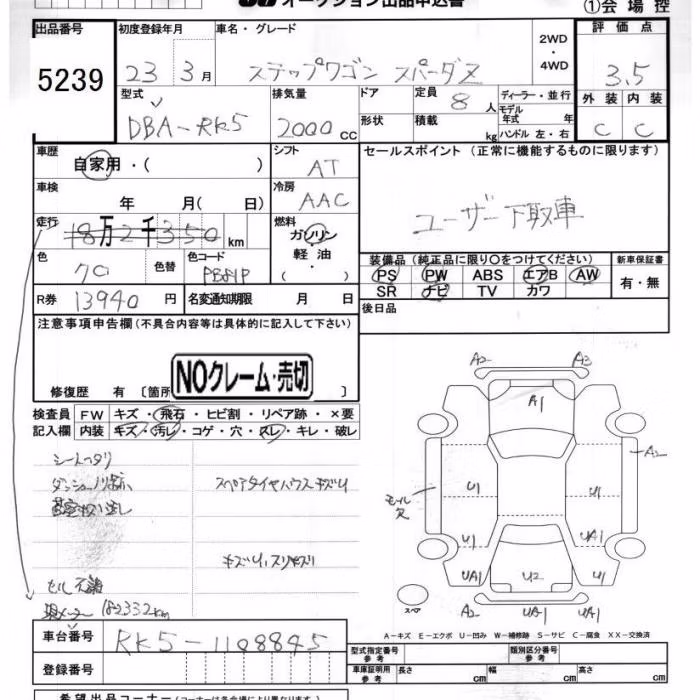 オークション出品申込書
①会場控
出品番号
5239
初度登録年月
23 3月
車名・グレード
ステップワゴン スパーダZ
2WD
・
4WD
評価点
3.5
外装 内装
C C
型式
DBA-RK5
排気量
2000cc
ドア
形状
定員 8人
積載 kg
ディーラー・並行
モデル年式 年
ハンドル 左・右
車歴
自家用・( )
シフト
AT
車検
年 月( 日)
冷房
AAC
走行
18万2千350km
燃料
ガソリン
・
軽油
・
( )
色
70
色替
色コード
PB81P
R券 13940円
名変通知期限 月 日
セールスポイント (正常に機能するものに限ります)
ユーザー下取車
装備品(純正品に限り〇をつけてください)
PS PW ABS エアB AW
SR ナビ TV カワ
新車保証書
有・無
後日品
注意事項申告欄(不具合内容等は具体的に記入して下さい)
NOクレーム・売切
修復歴 有 〔箇所 〕
検査員
記入欄
FW キズ・飛石・ヒビ割・リペア跡・×要
内装 キズ・汚レ・コゲ・穴・スレ・キレ・破レ
シートヘタリ
スペアタイヤハウスキズU
182332km
A2 A3
A1
A2
モール欠
U1 U1
U1 UA1
UA1 U2 U1
スペア
U2 UA1 UA1
A-キズ E-エクボ U-凹み W-補修跡 S-サビ C-腐食 XX-交換済
車台番号
RK5-1108845
登録番号
型式指定番号
参考
類別区分番号
参考
車庫証明用
参考
長さ cm 幅 cm 高さ cm
希望出品コーナー(コーナーは各会場により異なります)